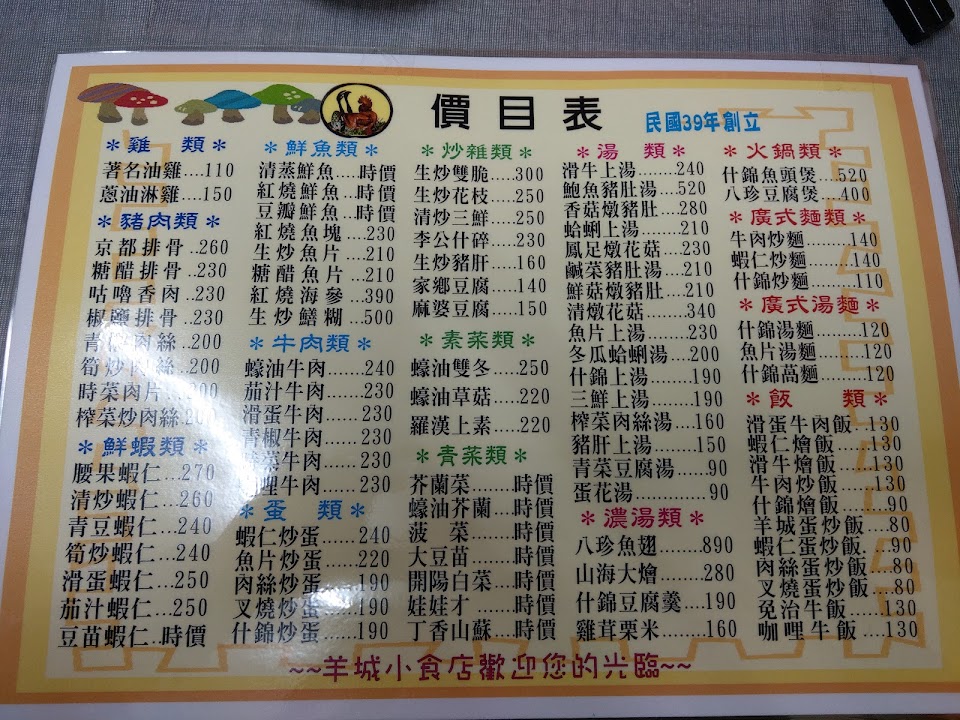 價目表
民國39年創立
＊雞 類＊
著名油雞....110
蔥油淋雞....150
＊豬肉類＊
京都排骨.260
糖醋排骨..230
咕嚕香肉..230
椒鹽排骨..230
肉絲..200
筍炒肉絲...200
時菜肉片
榨菜炒肉絲
＊鮮蝦類＊
腰果蝦仁...270
清炒蝦仁....260
青豆蝦仁...240
筍炒蝦仁....240
滑蛋蝦仁....250
茄汁蝦仁....250
豆苗蝦仁..時價
＊鮮魚類＊
清蒸鮮魚....時價
紅燒鮮魚...時價
豆瓣鮮魚..時價
紅燒魚塊....230
生炒魚片....210
糖醋魚片....210
紅燒海參....390
生炒鱔糊....500
＊牛肉類＊
蠔油牛肉.......240
茄汁牛肉......230
滑蛋牛肉......230
青椒牛肉......230
菜牛肉.....230
哩牛肉......230
＊蛋 類＊
蝦仁炒蛋......240
魚片炒蛋......220
肉絲炒蛋......190
叉燒炒蛋......190
什錦炒蛋......190
＊炒雜類＊
生炒雙脆.....300
生炒花枝.....250
清炒三鮮.....250
李公什碎.....230
生炒豬肝.....160
家鄉豆腐.....140
麻婆豆腐.....150
＊素菜類＊
蠔油雙冬....250
蠔油草菇.....220
羅漢上素.....220
＊青菜類＊
芥蘭菜.......時價
蠔油芥蘭....時價
菠 菜.......時價
大豆苗.......時價
開陽白菜....時價
娃娃才.......時價
丁香山蘇....時價
＊湯 類＊
滑牛上湯.......240
鮑魚豬肚湯....520
香菇燉豬肚....280
蛤蜊上湯........210
鳳足燉花菇....230
鹹菜豬肚湯....210
鮮菇燉豬肚....210
清燉花菇........340
魚片上湯........230
冬瓜蛤蜊湯....200
什錦上湯........190
三鮮上湯........190
榨菜肉絲湯....160
豬肝上湯........150
青菜豆腐湯......90
蛋花湯..............90
＊濃湯類＊
八珍魚翅........890
山海大燴........280
什錦豆腐羹....190
雞茸栗米........160
＊火鍋類＊
什錦魚頭煲...520
八珍豆腐煲...400
＊廣式麵類＊
牛肉炒麵.........140
蝦仁炒麵.........140
什錦炒麵.........110
＊廣式湯麵＊
什錦湯麵.........120
魚片湯麵.........120
什錦萵麵.........120
＊飯 類＊
滑蛋牛肉飯..130
蝦仁燴飯......130
滑牛燴飯......130
牛肉炒飯......130
什錦燴飯........90
羊城蛋炒飯....80
蝦仁蛋炒飯....90
肉絲蛋炒飯....80
叉燒蛋炒飯....80
免治牛飯......130
咖哩牛飯....130
~~羊城小食店歡迎您的光臨~~